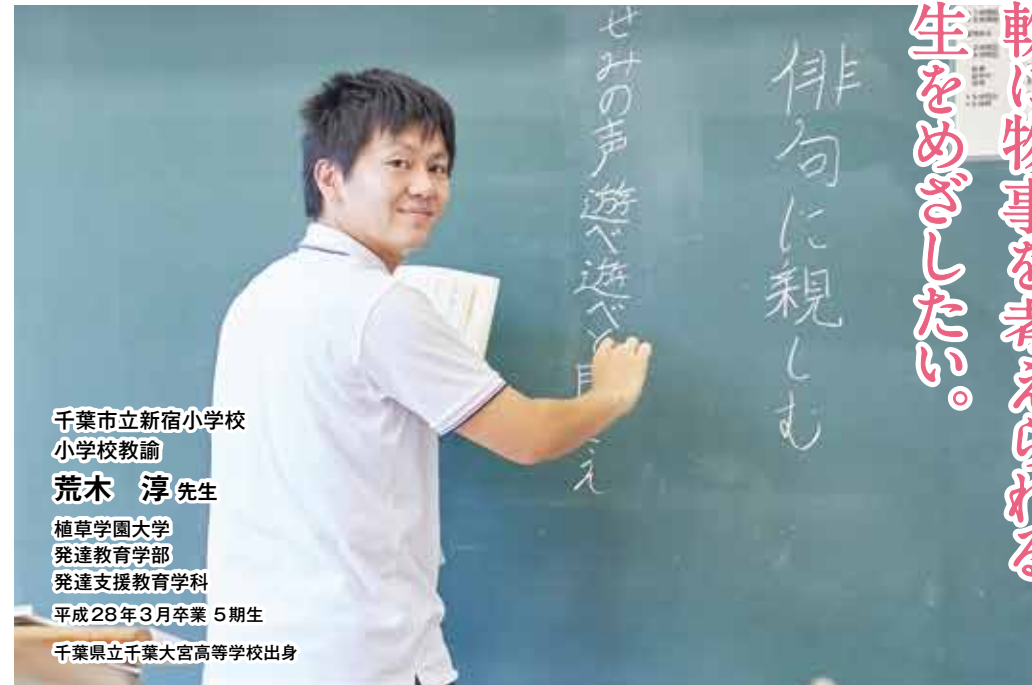 軸に物事を考えられる
生をめざしたい。
俳句に親しむ
せみの声遊べ遊べと こえ
千葉市立新宿小学校
小学校教諭
荒木 淳 先生
植草学園大学
発達教育学部
発達支援教育学科
平成28年3月卒業 5期生
千葉県立千葉大宮高等学校出身